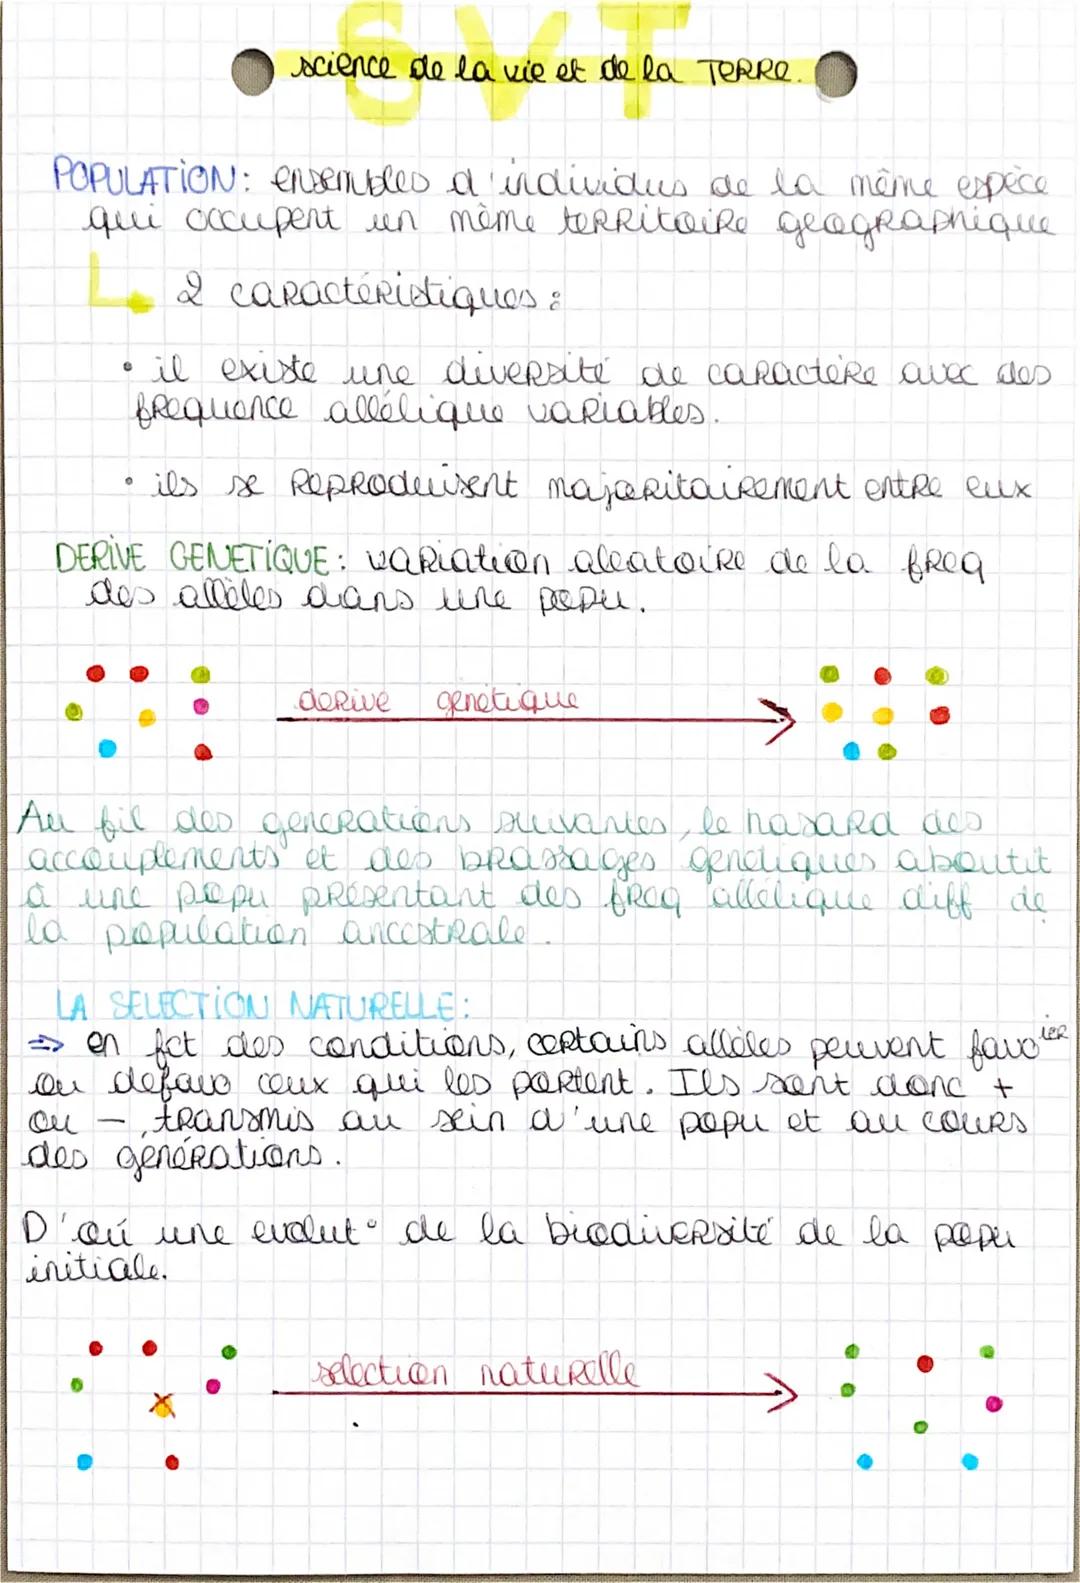 SVT
science de la vie et de la TERRE.
POPULATION: ensembles d'individus de la même espèce
qui occupent un même territoire geographique
2 caractéristiques:
• il existe une diversité de caractère avec des
frequence allélique variables.
• ils se reproduisent majoritairement entre eux
DERIVE GENETIQUE: variation aleatoire de la freq
des allèles dans une popu.
derive genetique
Au fil des generations suivantes, le hasard des
accouplements et des brassages genetiques aboutit
à une popu présentant des freq allélique diff de
la population ancestrale.
LA SELECTION NATURELLE:
⇒ en fct des conditions, certains allèles peuvent favoier
ou defavo ceux qui les portent. Ils sont donc +
ou - transmis au sein d'une popu et au cours
des générations.
D'où une evolut° de la biodiversité de la popu
initiale.
selection naturelle